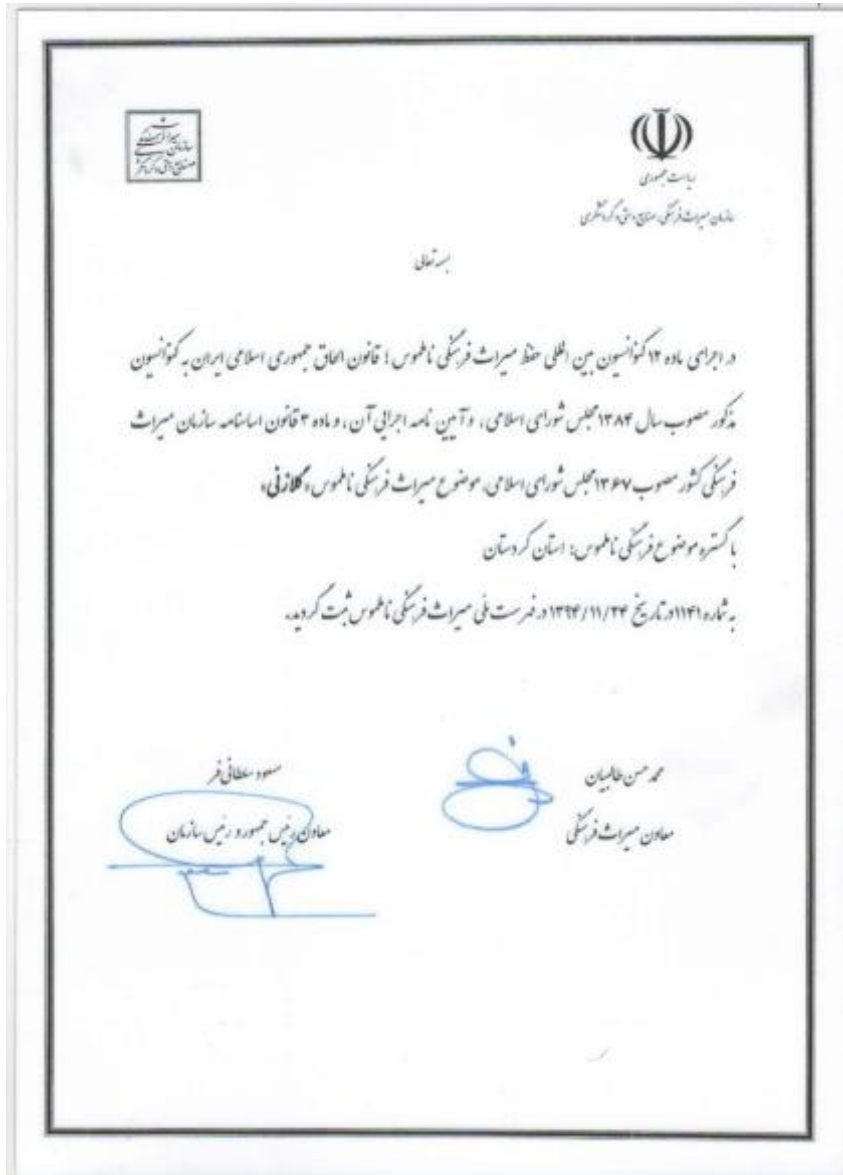 ریاست جمهوری
سازمان میراث فرهنگی، صنایع دستی و گردشگری
سازمان میراث فرهنگی صنایع دستی و گردشگری
بسمه تعالی
در اجرای ماده ۱۲ کنوانسیون بین المللی حفظ میراث فرهنگی ناملموس؛ قانون الحاق جمهوری اسلامی ایران به کنوانسیون
مذکور مصوب سال ۱۳۸۴ مجلس شورای اسلامی، و آیین نامه اجرایی آن، و ماده ۳ قانون اساسنامه سازمان میراث
فرهنگی کشور مصوب ۱۳۶۷ مجلس شورای اسلامی، موضوع میراث فرهنگی ناملموس «گلاازنی»
با گستره موضوع فرهنگی ناملموس: استان کردستان
به شماره ۱۱۴۱ در تاریخ ۱۳۹۴/۱۱/۲۴ در فهرست ملی میراث فرهنگی ناملموس ثبت گردید.
محمد حسن طالبیان
معاون میراث فرهنگی
مسعود سلطانی فر
معاون رئیس جمهور و رئیس سازمان